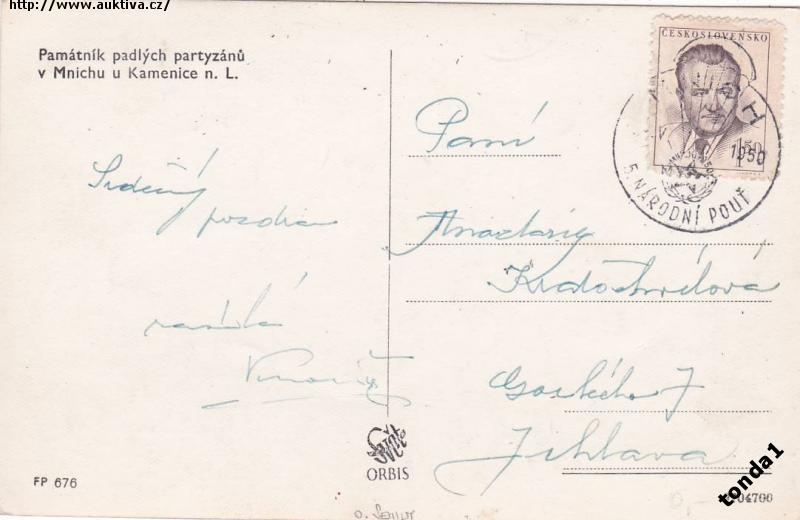 http://www.auktiva.cz/
Památník padlých partyzánů
v Mnichu u Kamenice n. L.
ČESKOSLOVENSKO
1950
5. NÁRODNÍ POUŤ
Srdečný
pozdrav
zasílá
Paní
Kratochvílová
Gorkého 7
Jihlava
ORBIS
FP 676
tonda1